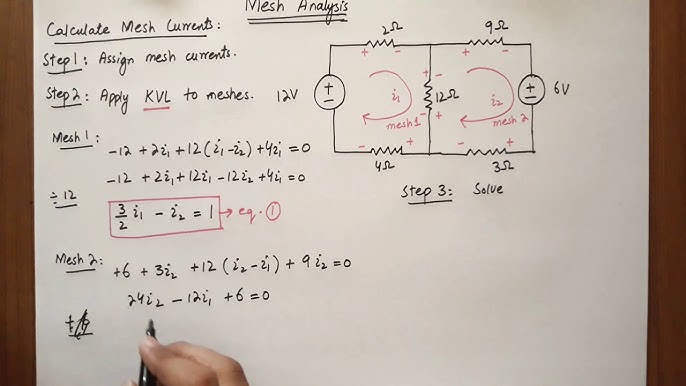 Mesh Analysis
Calculate Mesh Currents:
Step 1: Assign mesh currents.
Step 2: Apply KVL to meshes.
Mesh 1:
-12 + 2i₁ + 12(i₁-i₂) + 4i₁ = 0
-12 + 2i₁ + 12i₁ - 12i₂ + 4i₁ = 0
÷ 12
3/2 i₁ - i₂ = 1 → eq. ①
Mesh 2:
+6 + 3i₂ + 12(i₂-i₁) + 9i₂ = 0
24i₂ - 12i₁ + 6 = 0
2Ω
9Ω
12V
+ - + -
i₁
12Ω
i₂
6V
mesh 1
mesh 2
4Ω
3Ω
Step 3: Solve